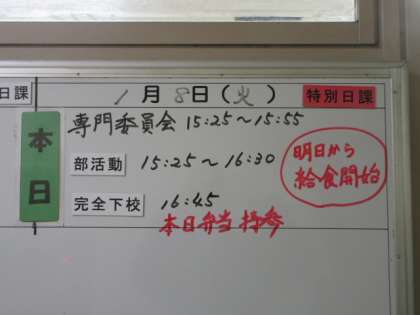 日課 1月8日(火) 特別日課
本日
専門委員会 15:25~15:55
部活動 15:25~16:30
完全下校 16:45
本日弁当持参
明日から
給食開始